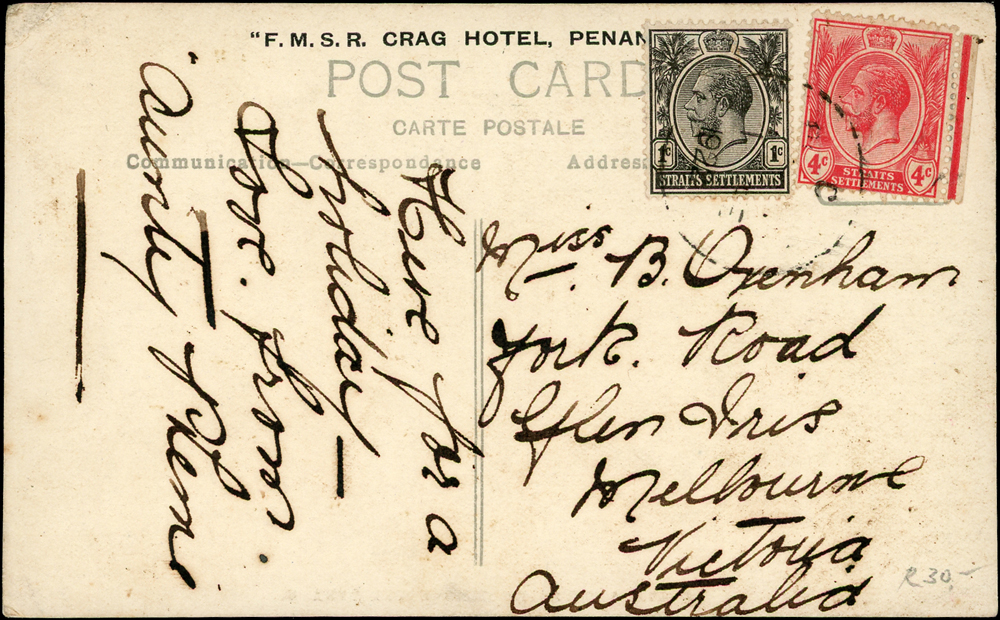 "F.M.S.R. CRAG HOTEL, PENAN
POST CARD
CARTE POSTALE
Communication—Correspondence
Address
1c 1c
STRAITS SETTLEMENTS
4c 4c
STRAITS
SETTLEMENTS
Here for a
holiday —
Love. from.
"Aunty
Miss B. Oxenham
York. Road
Glen Iris
Melbourne
Victoria
Australia
R30,-